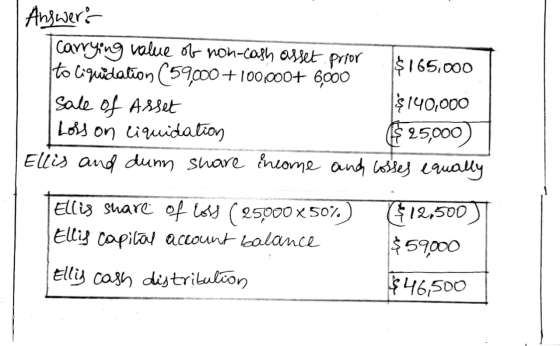 Answer:-
Carrying value of non-cash asset prior
to liquidation (59,000 + 100,000 + 6,000 $165,000
Sale of Asset $140,000
Loss on liquidation ($ 25,000)
Ellis and dunn share income and losses equally
Ellis share of loss (25,000 x 50%) ($ 12,500)
Ellis capital account balance $ 59,000
Ellis cash distribution $46,500